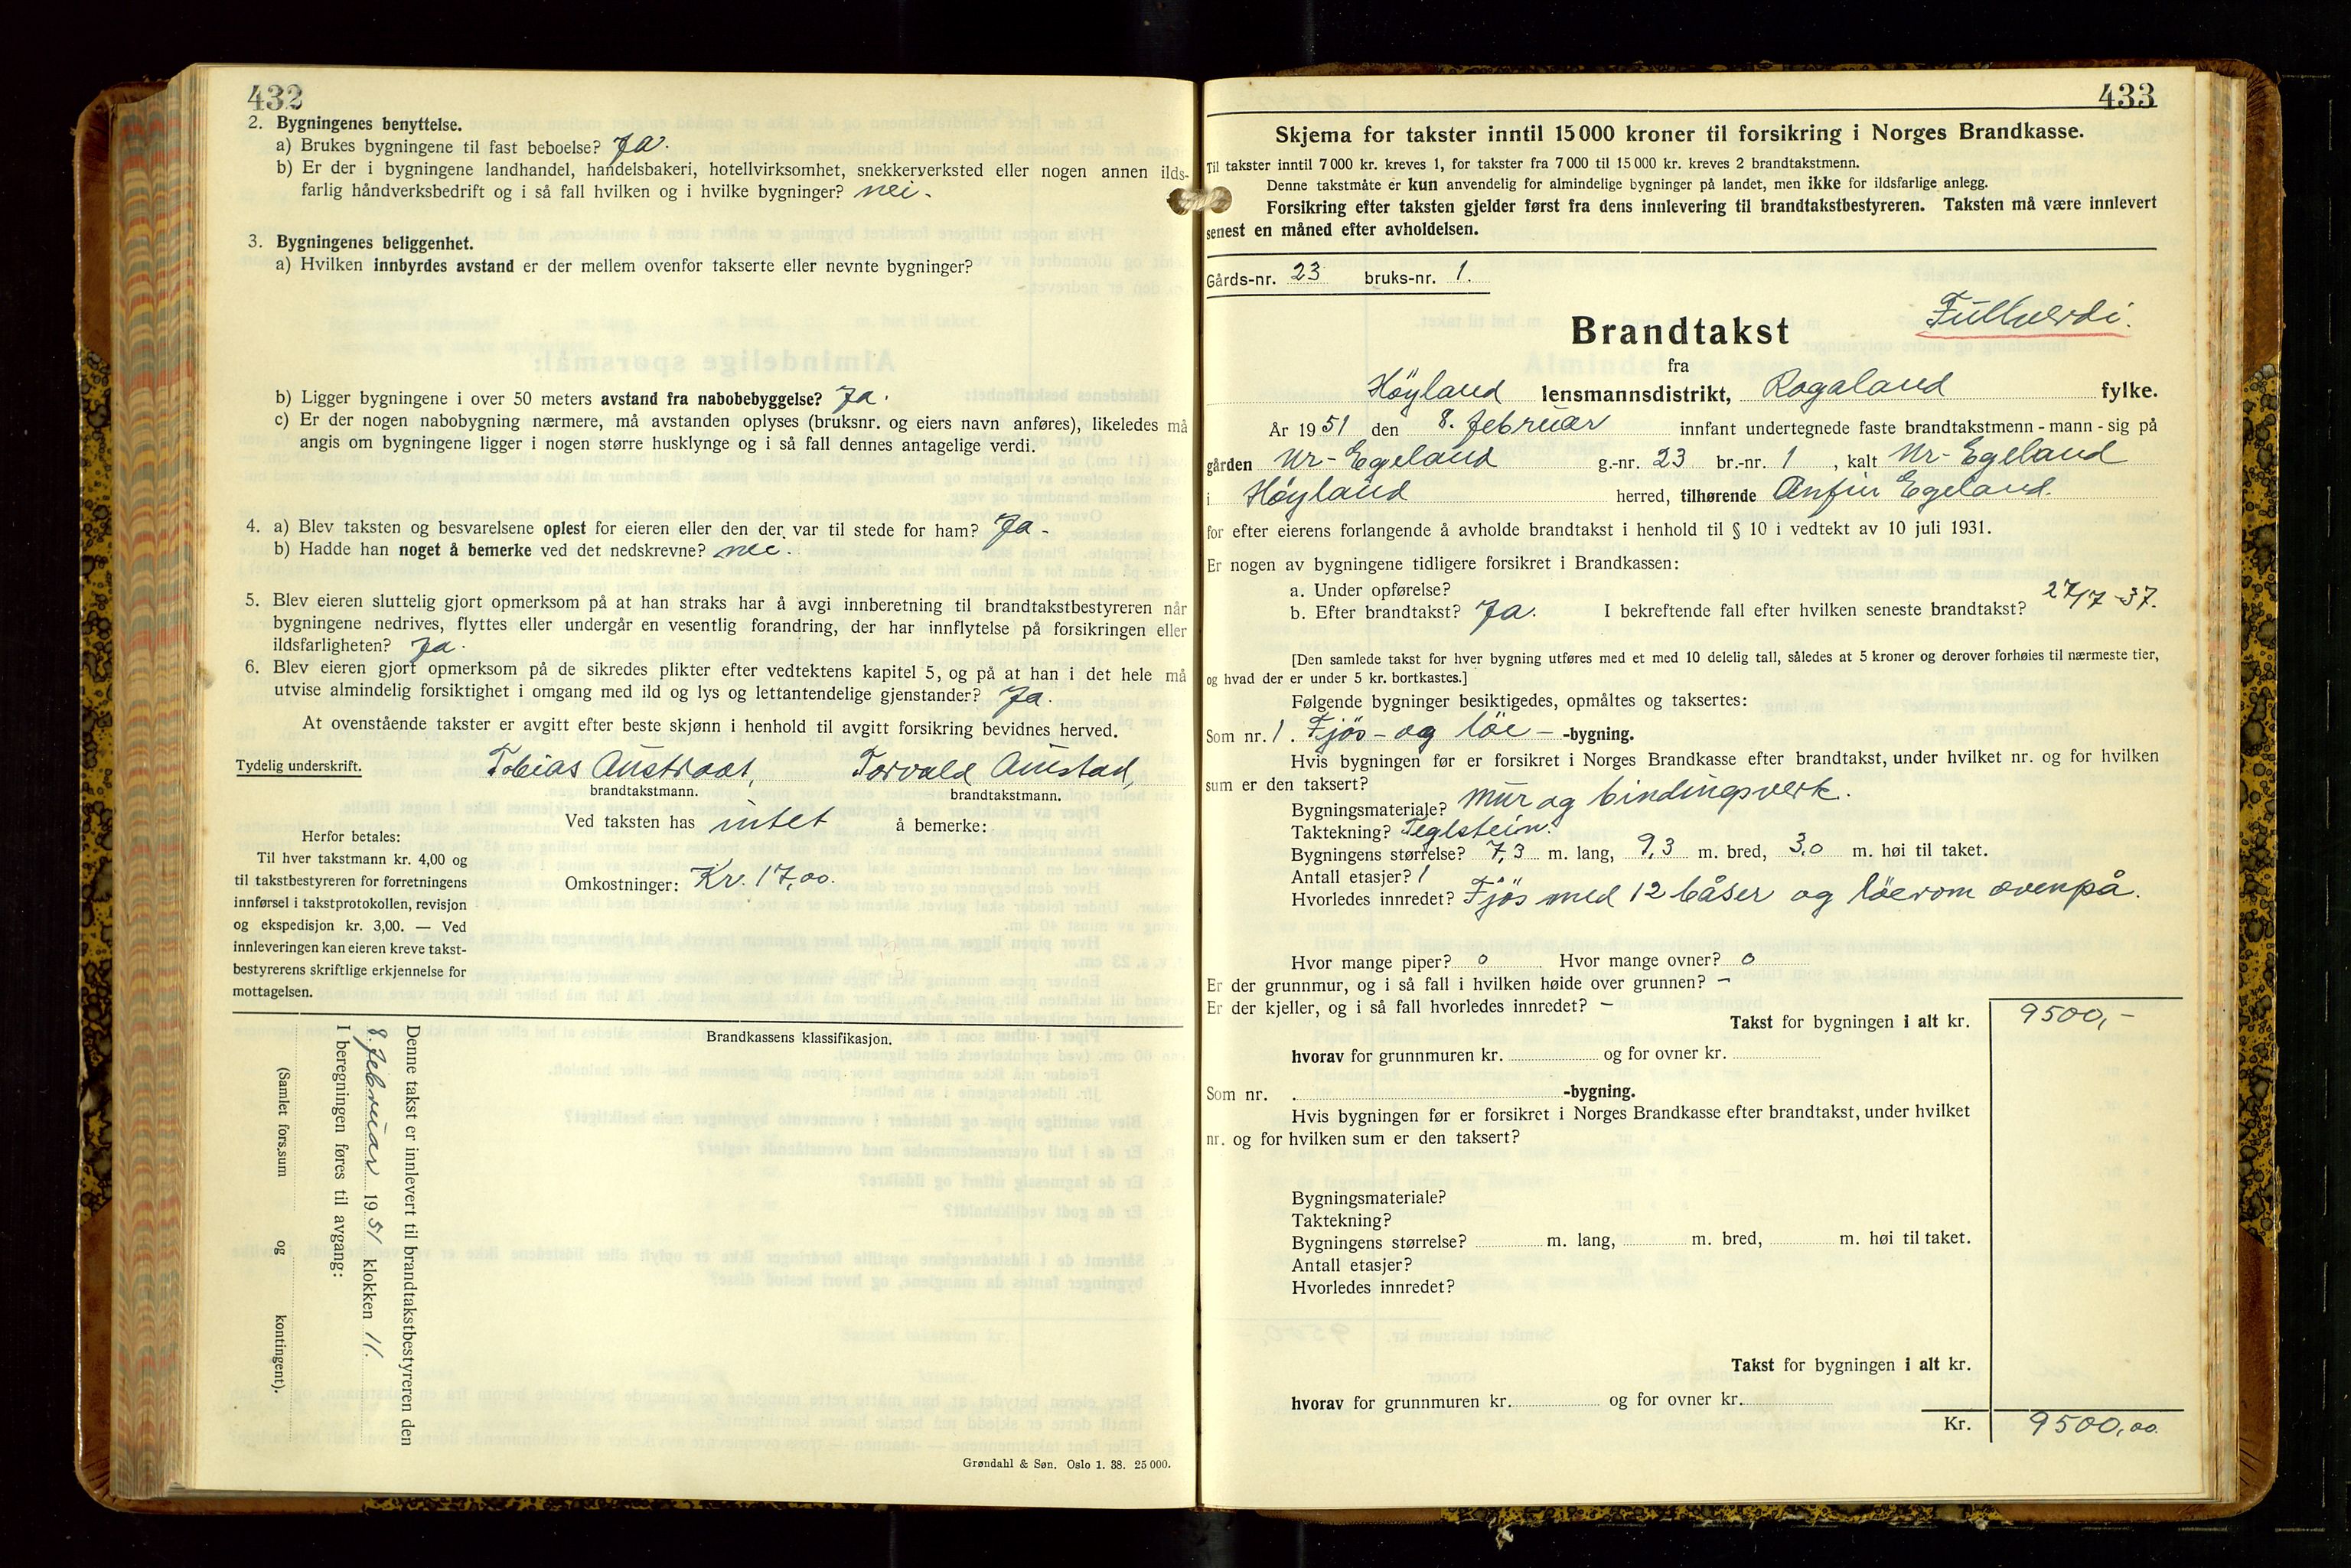 432
2. Bygningenes benyttelse.
a) Brukes bygningene til fast beboelse? Ja.
b) Er der i bygningene landhandel, handelsbakeri, hotellvirksomhet, snekkerverksted eller nogen annen ilds-
farlig håndverksbedrift og i så fall hvilken og i hvilke bygninger? nei.
3. Bygningenes beliggenhet.
a) Hvilken innbyrdes avstand er der mellem ovenfor takserte eller nevnte bygninger?
b) Ligger bygningene i over 50 meters avstand fra nabobebyggelse? Ja.
c) Er der nogen nabobygning nærmere, må avstanden oplyses (bruksnr. og eiers navn anføres), likeledes må
angis om bygningene ligger i nogen større husklynge og i så fall dennes antagelige verdi.
4. a) Blev taksten og besvarelsene oplest for eieren eller den der var til stede for ham? Ja -
b) Hadde han noget å bemerke ved det nedskrevne? nei.
5. Blev eieren sluttelig gjort opmerksom på at han straks har å avgi innberetning til brandtakstbestyreren når
bygningene nedrives, flyttes eller undergår en vesentlig forandring, der har innflytelse på forsikringen eller
ildsfarligheten? Ja.
6. Blev eieren gjort opmerksom på de sikredes plikter efter vedtektens kapitel 5, og på at han i det hele må
utvise almindelig forsiktighet i omgang med ild og lys og lettantendelige gjenstander? Ja.
At ovenstående takster er avgitt efter beste skjønn i henhold til avgitt forsikring bevidnes herved.
Tydelig underskrift. Tobias Austraat, Torvald Austad,
brandtakstmann. brandtakstmann.
Ved taksten has intet å bemerke:
Omkostninger: Kr. 17,00.
Herfor betales:
Til hver takstmann kr. 4,00 og
til takstbestyreren for forretningens
innførsel i takstprotokollen, revisjon
og ekspedisjon kr. 3,00. — Ved
innleveringen kan eieren kreve takst-
bestyrerens skriftlige erkjennelse for
mottagelsen.
Brandkassens klassifikasjon.
Denne takst er innlevert til brandtakstbestyreren den
8. februar 1951 klokken 11.
I beregningen føres til avgang:
(Samlet fors.sum og kontingent).
Grøndahl & Søn. Oslo 1. 38. 25 000.
433
Skjema for takster inntil 15 000 kroner til forsikring i Norges Brandkasse.
Til takster inntil 7 000 kr. kreves 1, for takster fra 7 000 til 15 000 kr. kreves 2 brandtakstmenn.
Denne takstmåte er kun anvendelig for almindelige bygninger på landet, men ikke for ildsfarlige anlegg.
Forsikring efter taksten gjelder først fra dens innlevering til brandtakstbestyreren. Taksten må være innlevert
senest en måned efter avholdelsen.
Gårds-nr. 23 bruks-nr. 1.
Fullverdi.
Brandtakst
fra
Höyland lensmannsdistrikt, Rogaland fylke.
År 1951 den 8. februar innfant undertegnede faste brandtakstmenn - mann - sig på
gården Nr- Egeland g.-nr. 23 br.-nr. 1, kalt Nr- Egeland
i Höyland herred, tilhørende Anfin Egeland.
for efter eierens forlangende å avholde brandtakst i henhold til § 10 i vedtekt av 10 juli 1931.
Er nogen av bygningene tidligere forsikret i Brandkassen:
a. Under opførelse?
b. Efter brandtakst? Ja. I bekreftende fall efter hvilken seneste brandtakst? 27/7-37.
[Den samlede takst for hver bygning utføres med et med 10 delelig tall, således at 5 kroner og derover forhøies til nærmeste tier,
og hvad der er under 5 kr. bortkastes.]
Følgende bygninger besiktigedes, opmåltes og taksertes:
Som nr. 1. Fjös- og löe- -bygning.
Hvis bygningen før er forsikret i Norges Brandkasse efter brandtakst, under hvilket nr. og for hvilken
sum er den taksert?
Bygningsmateriale? Mur og bindingsverk.
Taktekning? Teglstein.
Bygningens størrelse? 7,3 m. lang, 9,3 m. bred, 3,0 m. høi til taket.
Antall etasjer? 1
Hvorledes innredet? Fjös med 12 båser og löerom ovenpå.
Hvor mange piper? 0 Hvor mange ovner? 0
Er der grunnmur, og i så fall i hvilken høide over grunnen? –
Er der kjeller, og i så fall hvorledes innredet? –
Takst for bygningen i alt kr. 9500,-
hvorav for grunnmuren kr. og for ovner kr.
Som nr. -bygning.
Hvis bygningen før er forsikret i Norges Brandkasse efter brandtakst, under hvilket
nr. og for hvilken sum er den taksert?
Bygningsmateriale?
Taktekning?
Bygningens størrelse? m. lang, m. bred, m. høi til taket.
Antall etasjer?
Hvorledes innredet?
Takst for bygningen i alt kr.
hvorav for grunnmuren kr. og for ovner kr.
Kr. 9500,00.